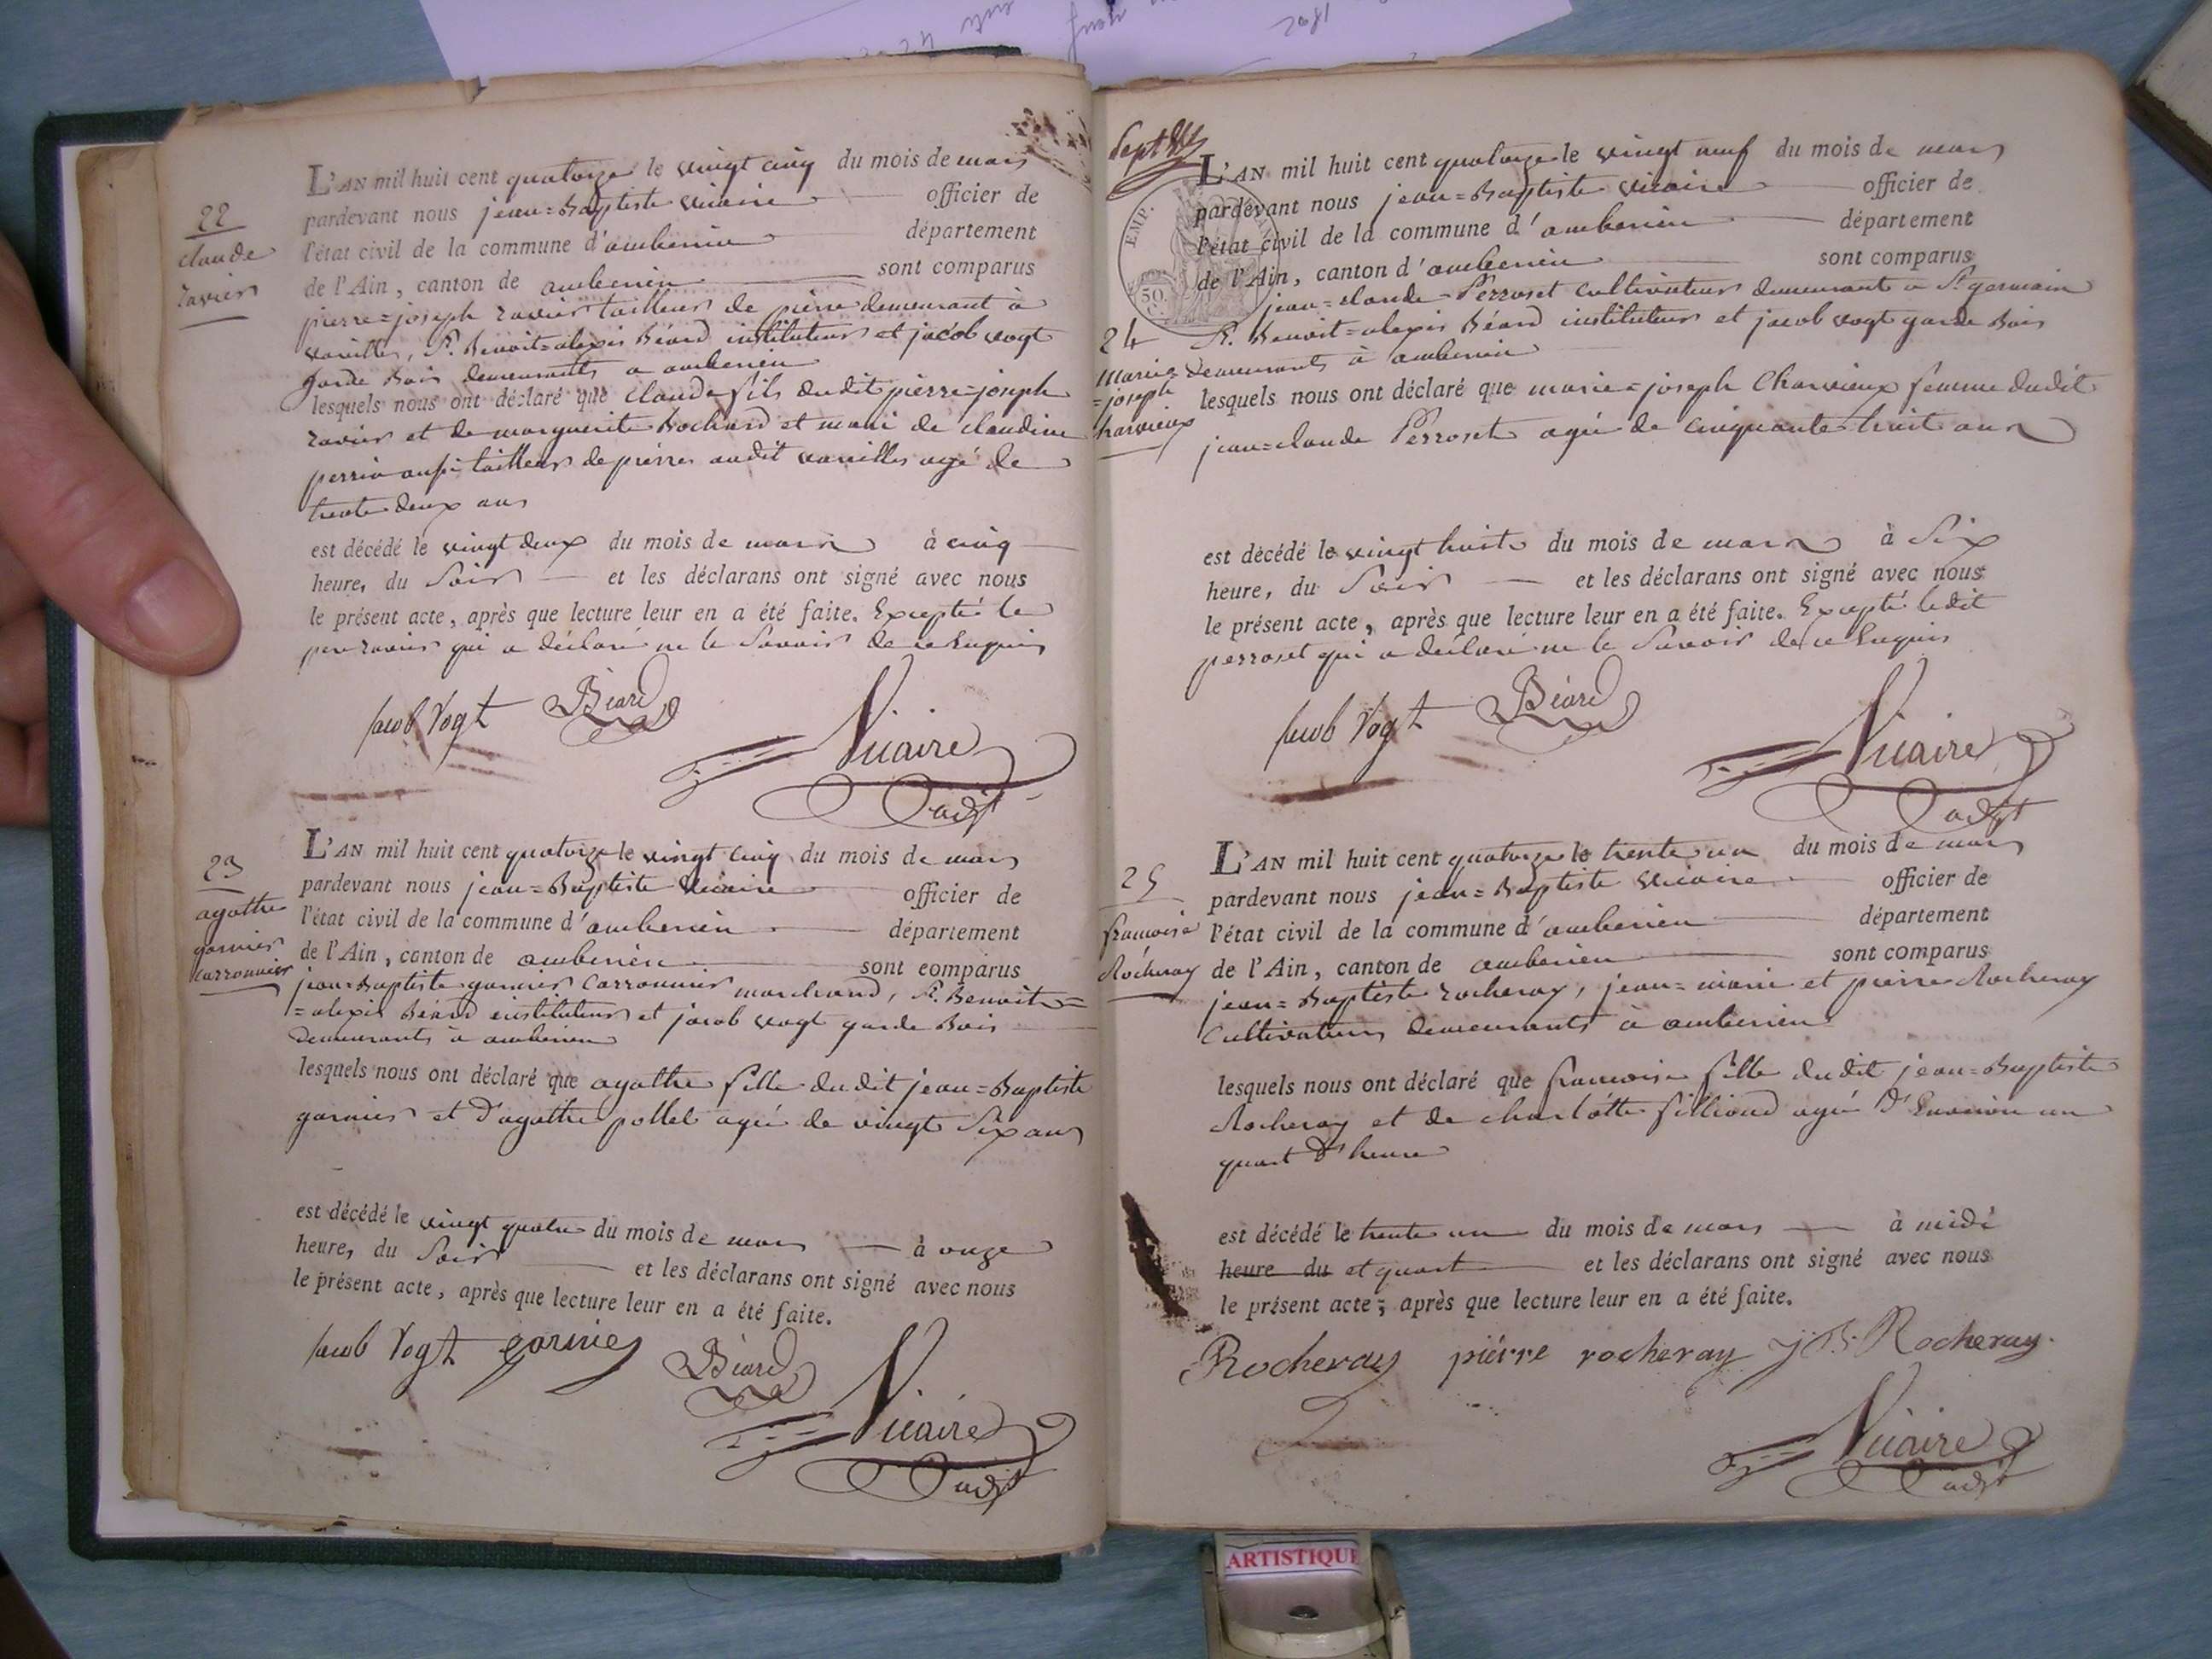 22
claude
ravier
L'AN mil huit cent quatorze le vingt cinq du mois de mars
pardevant nous jean=Baptiste vicaire officier de
l'état civil de la commune d'amberieu département
de l'Ain, canton de amberieu sont comparus
pierre=joseph ravier tailleur de pierre demeurant à
vareilles, Sr. Benoit=alexis Béard instituteur et jacob vogt
garde Bois demeurants a amberieu
lesquels nous ont déclaré que claude fils dudit pierre=joseph
ravier et de marguerite Bochard et mari de claudine
perrin aussi tailleur de pierres audit vareilles agé de
trente deux ans
est décédé le vingt deux du mois de mars à cinq
heures du Soir et les déclarans ont signé avec nous
le présent acte, après que lecture leur en a été faite. Excepté le
pere ravier qui a déclaré ne le Savoir de ce Enquis
Jacob Vogt Béard
Vicaire
adjt
23
agathe
garnier
carronnier
L'AN mil huit cent quatorze le vingt cinq du mois de mars
pardevant nous jean=Baptiste vicaire officier de
l'état civil de la commune d'amberieu département
de l'Ain, canton de amberieu sont comparus
jean=Baptiste garnier carronnier marchand, Sr. Benoit=
=alexis Béard instituteur et jacob vogt garde Bois
demeurants à amberieu
lesquels nous ont déclaré que agathe fille dudit jean=Baptiste
garnier et d'agathe pollet agée de vingt Six ans
est décédé le vingt quatre du mois de mars à onze
heures du Soir et les déclarans ont signé avec nous
le présent acte, après que lecture leur en a été faite.
Jacob Vogt garnier Béard
Vicaire
adjt
EMP.
50.
C.
24
Marie=
=joseph
charvieux
L'AN mil huit cent quatorze le vingt neuf du mois de mars
pardevant nous jean=Baptiste vicaire officier de
l'état civil de la commune d'amberieu département
de l'Ain, canton d'amberieu sont comparus
jean=claude Perroset cultivateur demeurants a St germain
Sr. Benoit=alexis Béard instituteur et jacob vogt garde Bois
demeurants à amberieu
lesquels nous ont déclaré que marie=joseph Charvieux femme dudit
jean=claude Perroset agée de cinquante huit ans
est décédé le vingt huit du mois de mars à Six
heures du Soir et les déclarans ont signé avec nous
le présent acte, après que lecture leur en a été faite. Excepté ledit
perroset qui a déclaré ne le Savoir de ce Enquis
Jacob Vogt Béard
Vicaire
adjt
25
francoise
Rocheray
L'AN mil huit cent quatorze le trente un du mois de mars
pardevant nous jean=Baptiste vicaire officier de
l'état civil de la commune d'amberieu département
de l'Ain, canton de amberieu sont comparus
jean=Baptiste rocheray, jean=marie et pierre Rocheray
Cultivateurs demeurants à amberieu
lesquels nous ont déclaré que francoise fille dudit jean=Baptiste
Rocheray et de charlotte fillioud agée d'Environ un
quart d'heure
est décédé le trente un du mois de mars à midi
heure du et quart et les déclarans ont signé avec nous
le présent acte, après que lecture leur en a été faite.
Rocheray pierre rocheray J B Rocheray
Vicaire
adjt
ARTISTIQUE